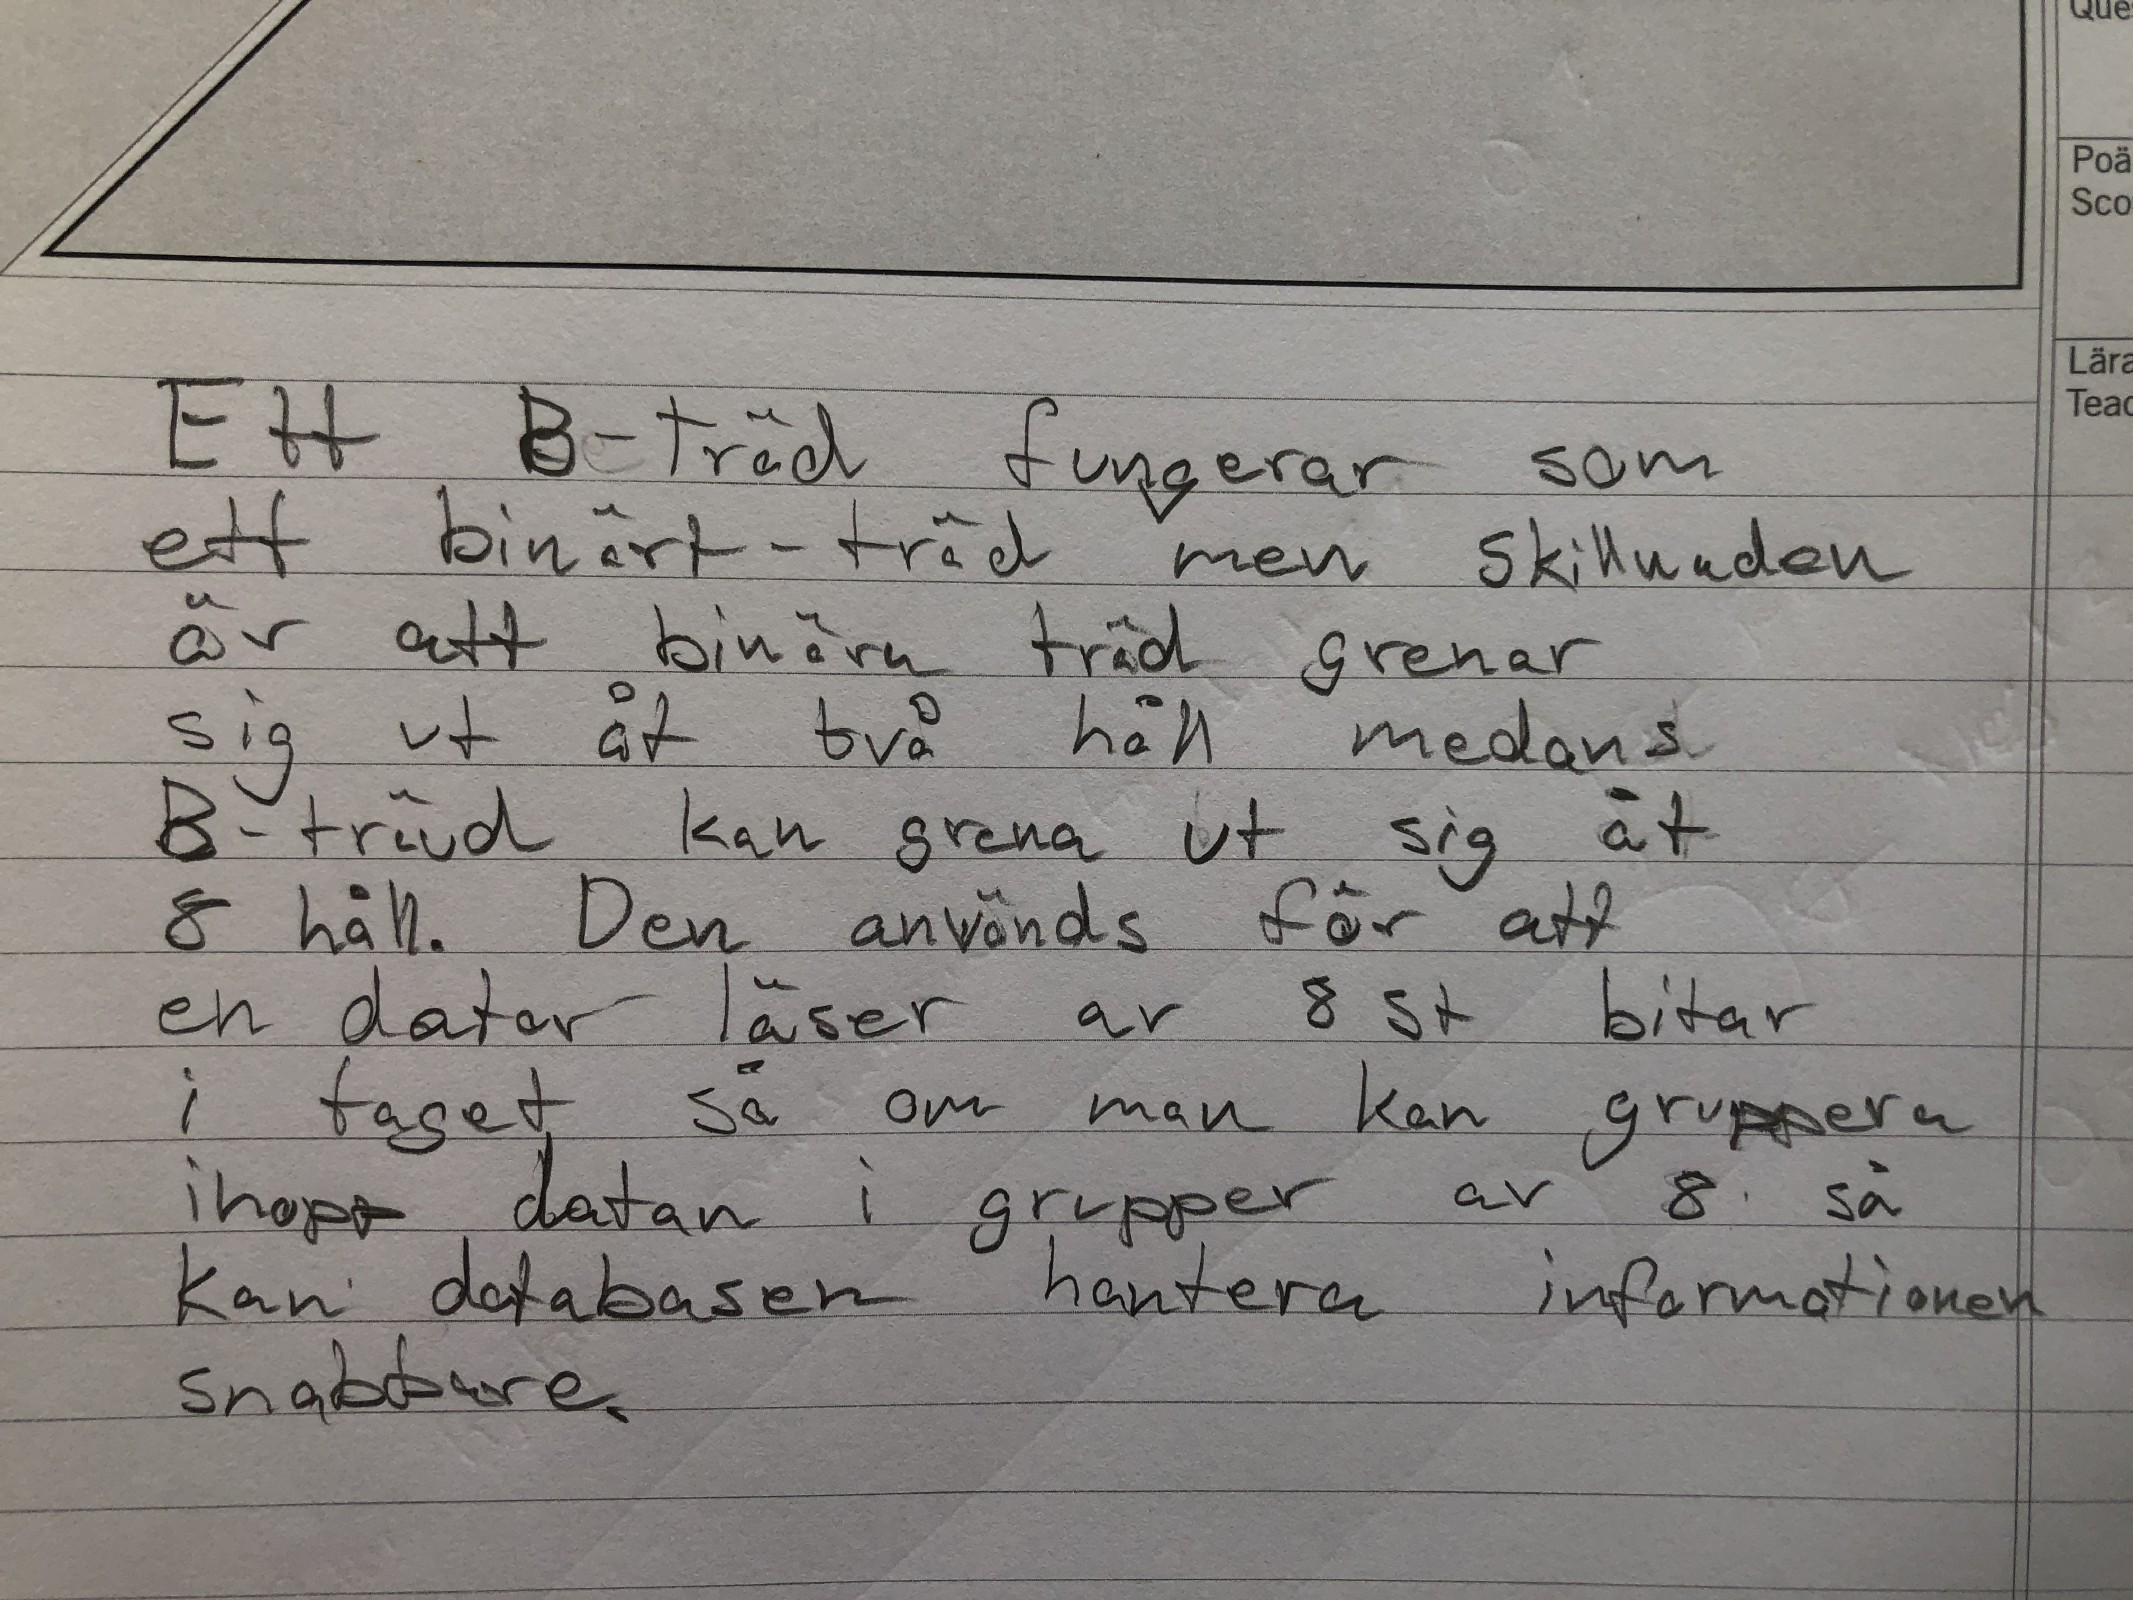 Ques
Poä
Sco
Lära
Teac
Ett B-träd fungerar som
ett binärt-träd men skillnaden
är att binära träd grenar
sig ut åt två håll medans
B-träd kan grena ut sig åt
8 håll. Den används för att
en dator läser av 8 st bitar
i taget så om man kan gruppera
ihop datan i grupper av 8 så
kan databasen hantera informationen
snabbare.